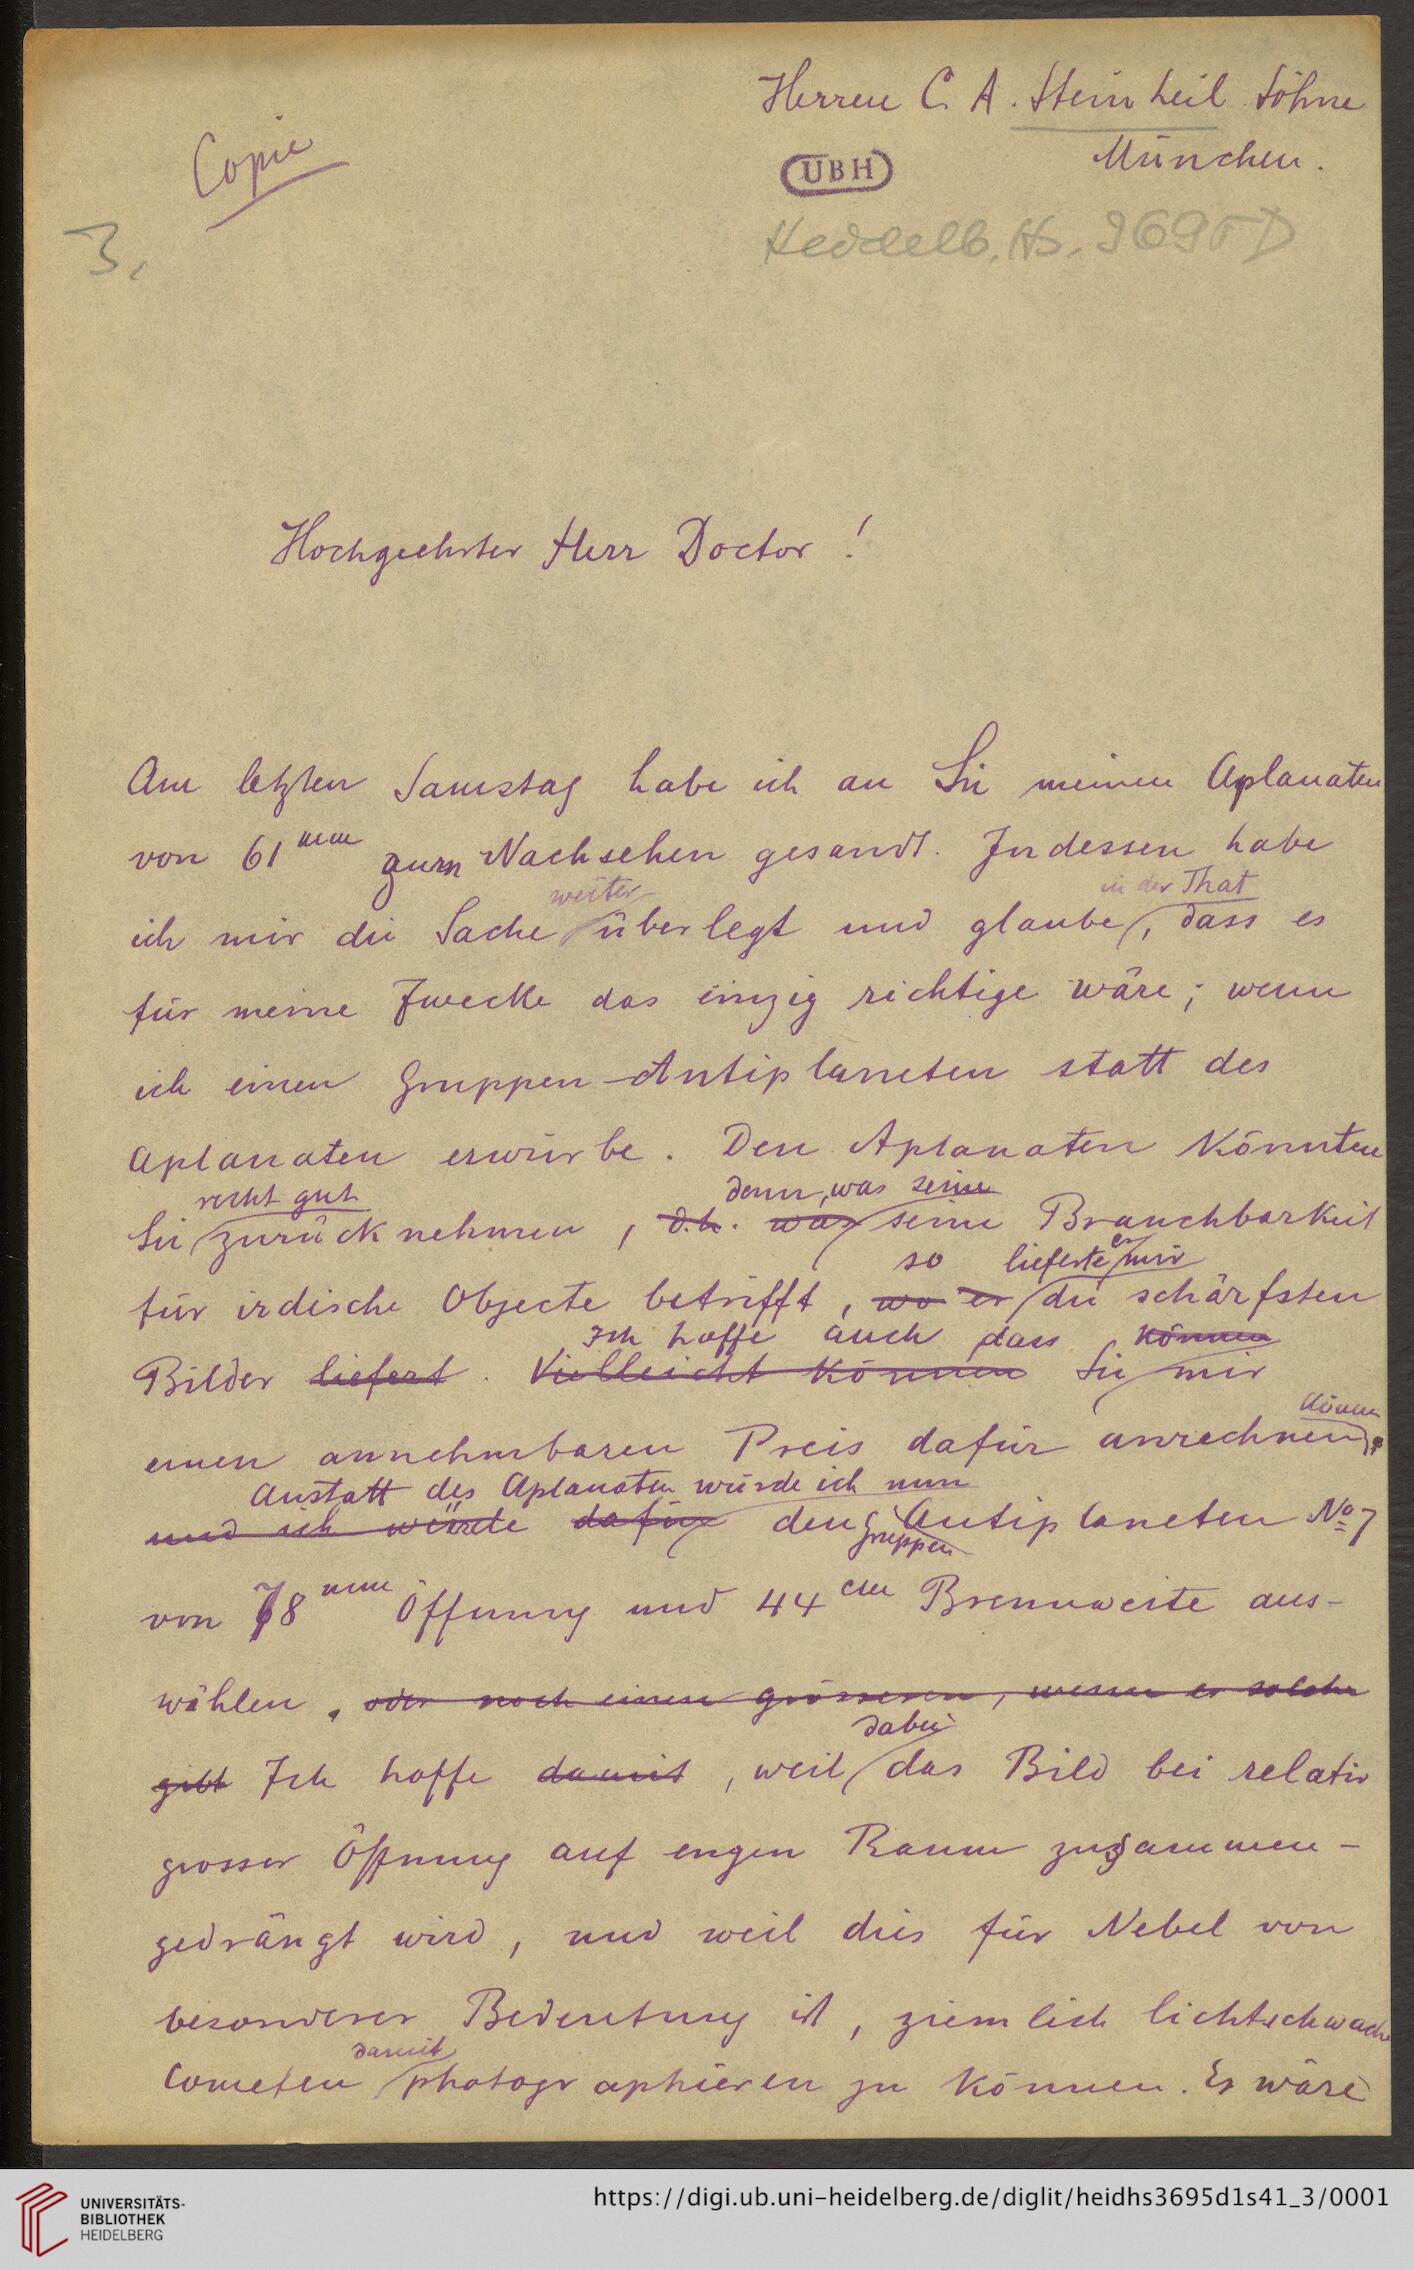 Herren C. A. Steinheil Söhne
München.
Copie
UBH
3.
Heidelb. Hs. 3695 D
Hochgeehrter Herr Doctor !
Am letzten Samstag habe ich an Sie meinen Aplanaten
von 61 mm zum Nachsehen gesandt. Indessen habe
weiter in der That
ich mir die Sache überlegt und glaube, dass es
für meine Zwecke das einzig richtige wäre; wenn
ich einen Gruppen-Antiplaneten statt des
Aplanaten erwürbe. Den Aplanaten könnten
recht gut denn, was seine
Sie zurücknehmen, d.h. was seine Brauchbarkeit
so lieferte er mir
für irdische Objecte betrifft, wo er die schärfsten
Ich hoffe auch dass können
Bilder liefert. Vielleicht können Sie mir
können
einen annehmbaren Preis dafür anrechnen.
Anstatt des Aplanaten würde ich nun
und ich würde dafür den Antiplaneten No 7
Gruppen
von 78 mm Öffnung und 44 cm Brennweite aus-
wählen, oder noch einen grösseren, wenn es solche
dabei
gibt Ich hoffe damit, weil das Bild bei relativ
grosser Öffnung auf engen Raum zusammen-
gedrängt wird, und weil dies für Nebel von
besonderer Bedeutung ist, ziemlich lichtschwache
damit
Cometen photographieren zu können. Es wäre
UNIVERSITÄTS-
BIBLIOTHEK
HEIDELBERG
https://digi.ub.uni-heidelberg.de/diglit/heidhs3695d1s41_3/0001